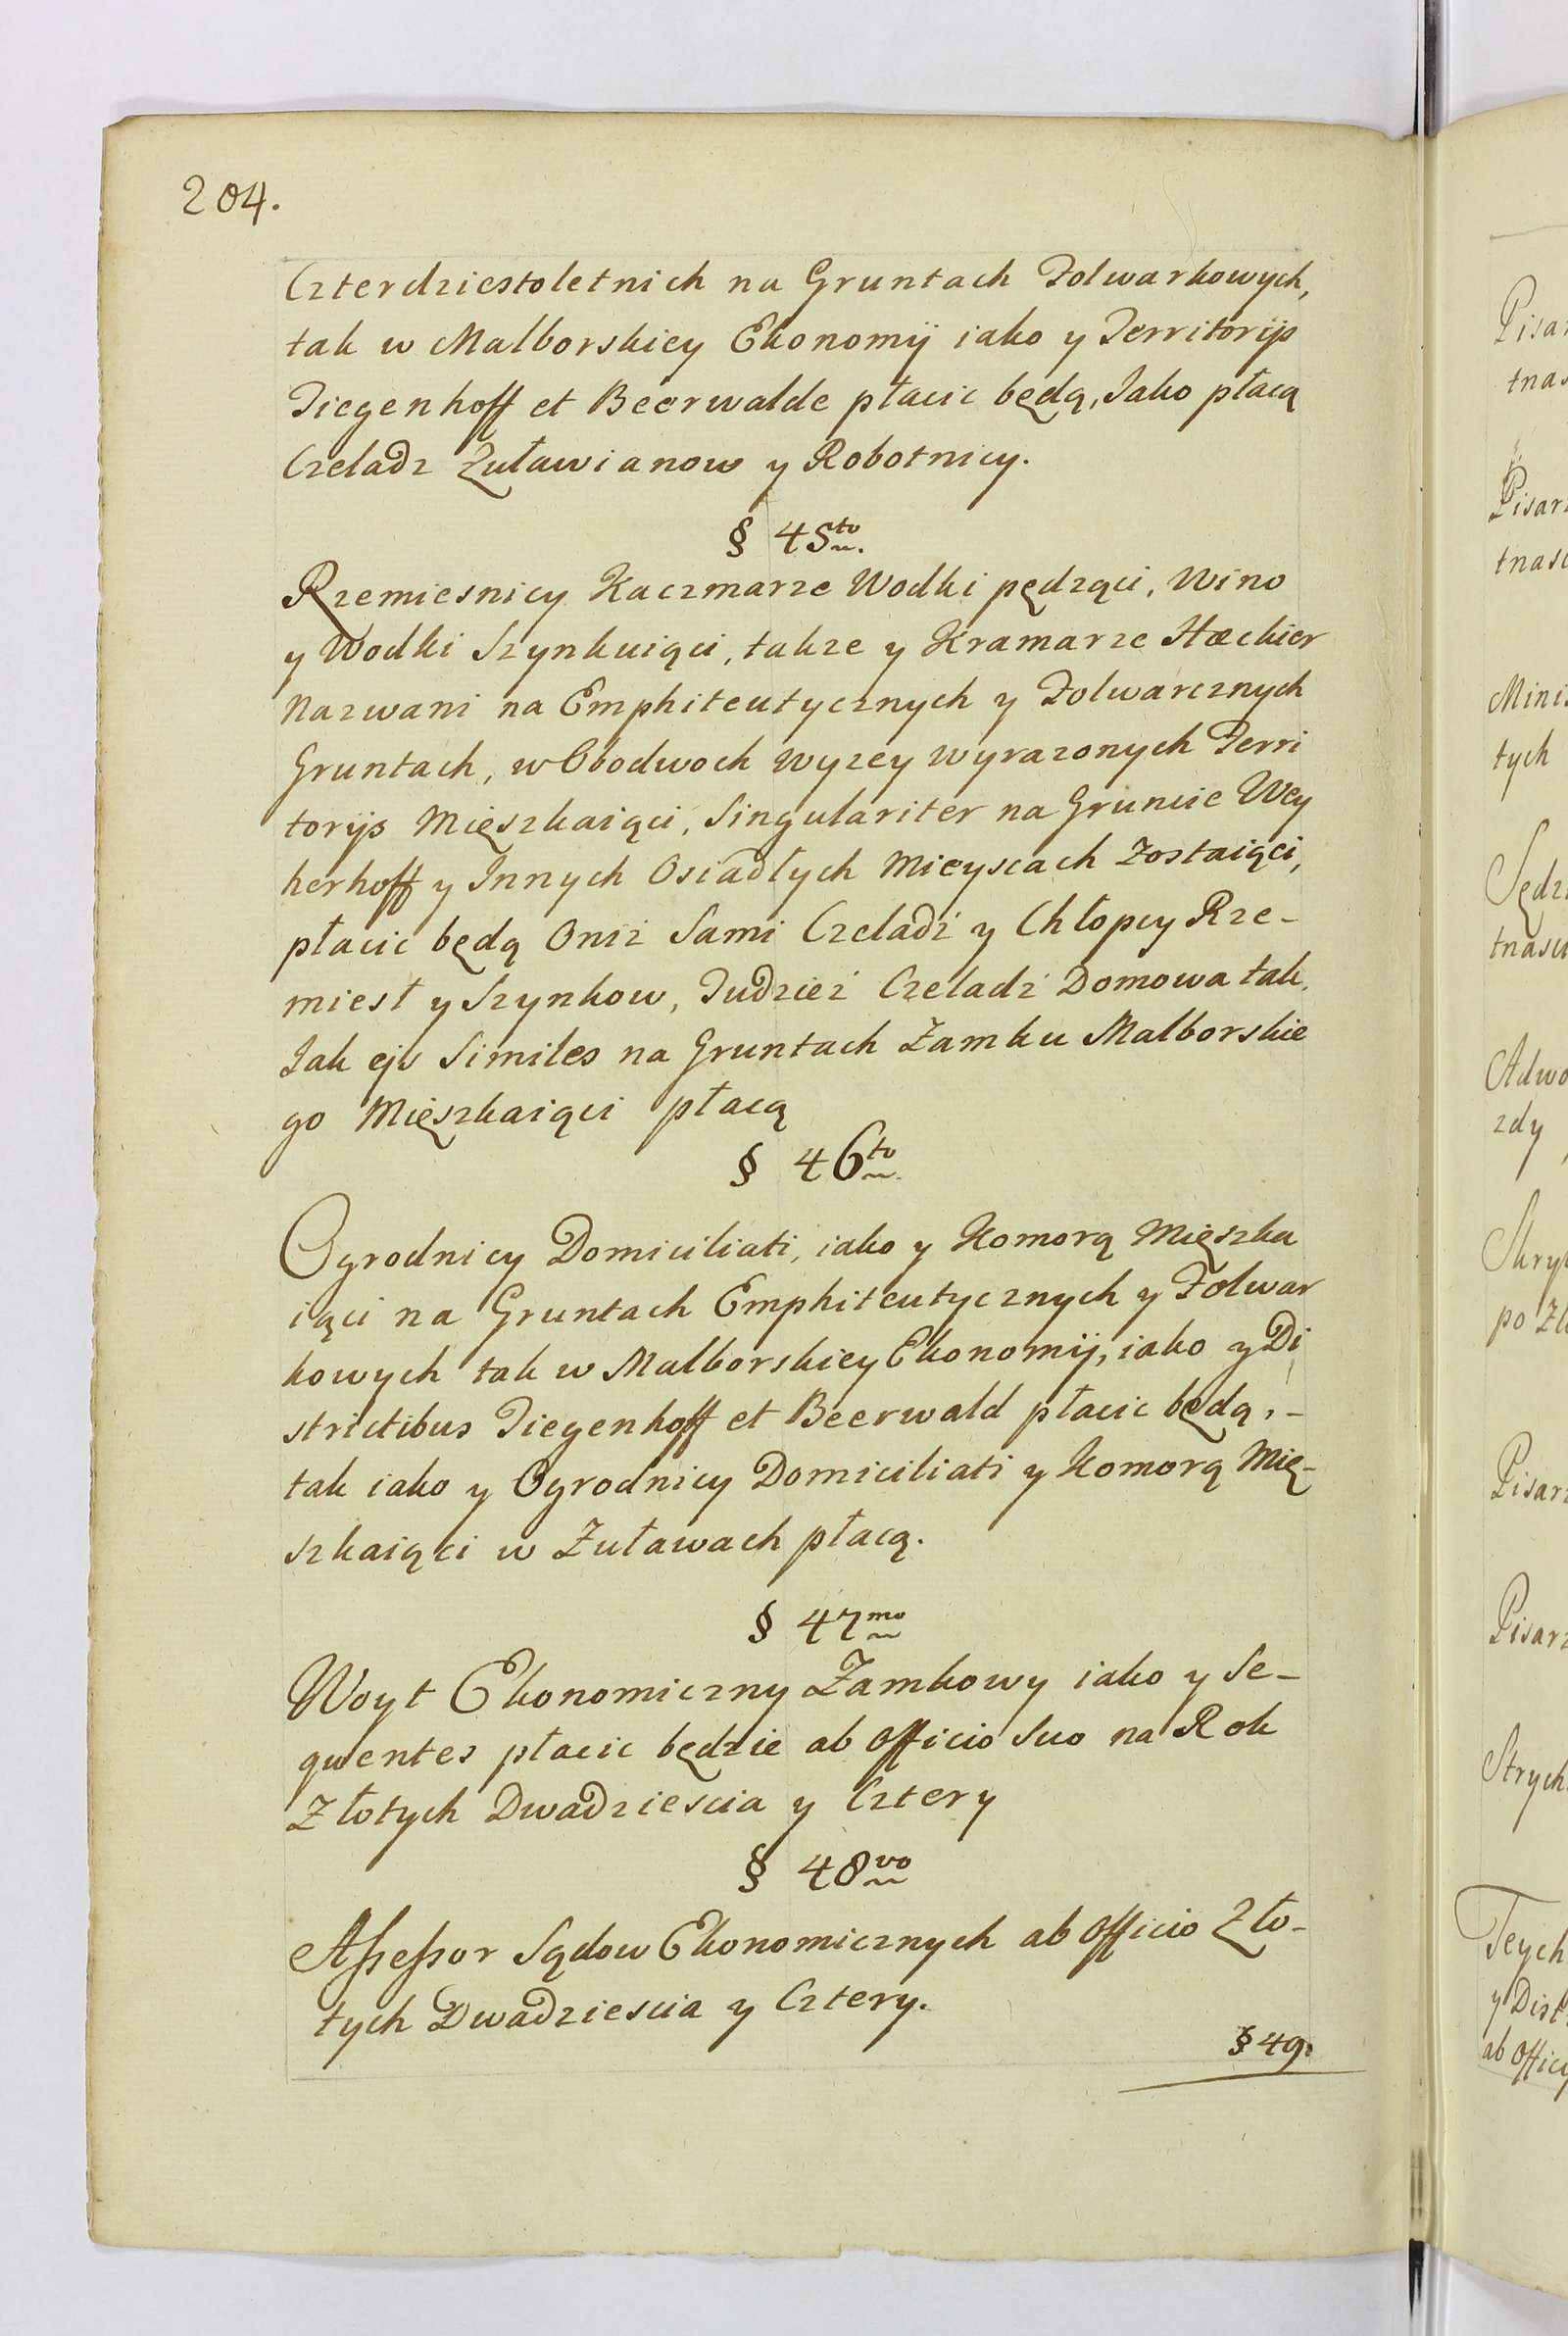 204.
Czterdziestoletnich na Gruntach Folwarkowych,
tak w Malborskiey Ekonomij iako y Territorijs
Tiegenhoff et Beerwalde płacic będą, Jako płacą
Czeladz Zuławianow y Robotnicy.
§ 45to.
Rzemiesnicy Kaczmarze Wodki pędząci, Wino
y Wodki Szynkuiąci, takze y Kramarze Hæckier
Nazwani na Emphiteutycznych y Folwarcznych
Gruntach, w Obodwoch wyzey wyrazonych Terri
torijs Mięszkaiąci, Singulariter na Gruncie Wey
herhoff y Innych Osiadłych Mieyscach Zostaiąci,
płacic będą Oniz Sami Czeladź y Chłopcy Rze-
miesł y Szynkow, Tudzież Czeladź Domowa tak,
Jak ejs Similes na Gruntach Zamku Malborskie
go Mięszkaiąci płacą
§ 46to.
Ogrodnicy Domiciliati, iako y Komorą Mięszka
iąci na Gruntach Emphiteutycznych y Folwar
kowych tak w Malborskiey Ekonomij, iako y Di
strictibus Tiegenhoff et Beerwald płacic będą, -
tak iako y Ogrodnicy Domiciliati y Komorą Mię-
szkaiąci w Zuławach płacą.
§ 47mo
Woyt Ekonomiczny Zamkowy iako y Se-
quentes płacic będzie ab Officio Suo na Rok
Złotych Dwadziescia y Cztery
§ 48vo
Assessor Sądow Ekonomicznych ab Officio Zło-
tych Dwadziescia y Cztery.
§ 49.
Pisar
tnas
Pisar
tnasc
Minis
tych
Sędz
tnasc
Adwo
zdy
Skry
po Zł
Pisar
Pisarz
Strych
Teych
y Dist
ab Offici